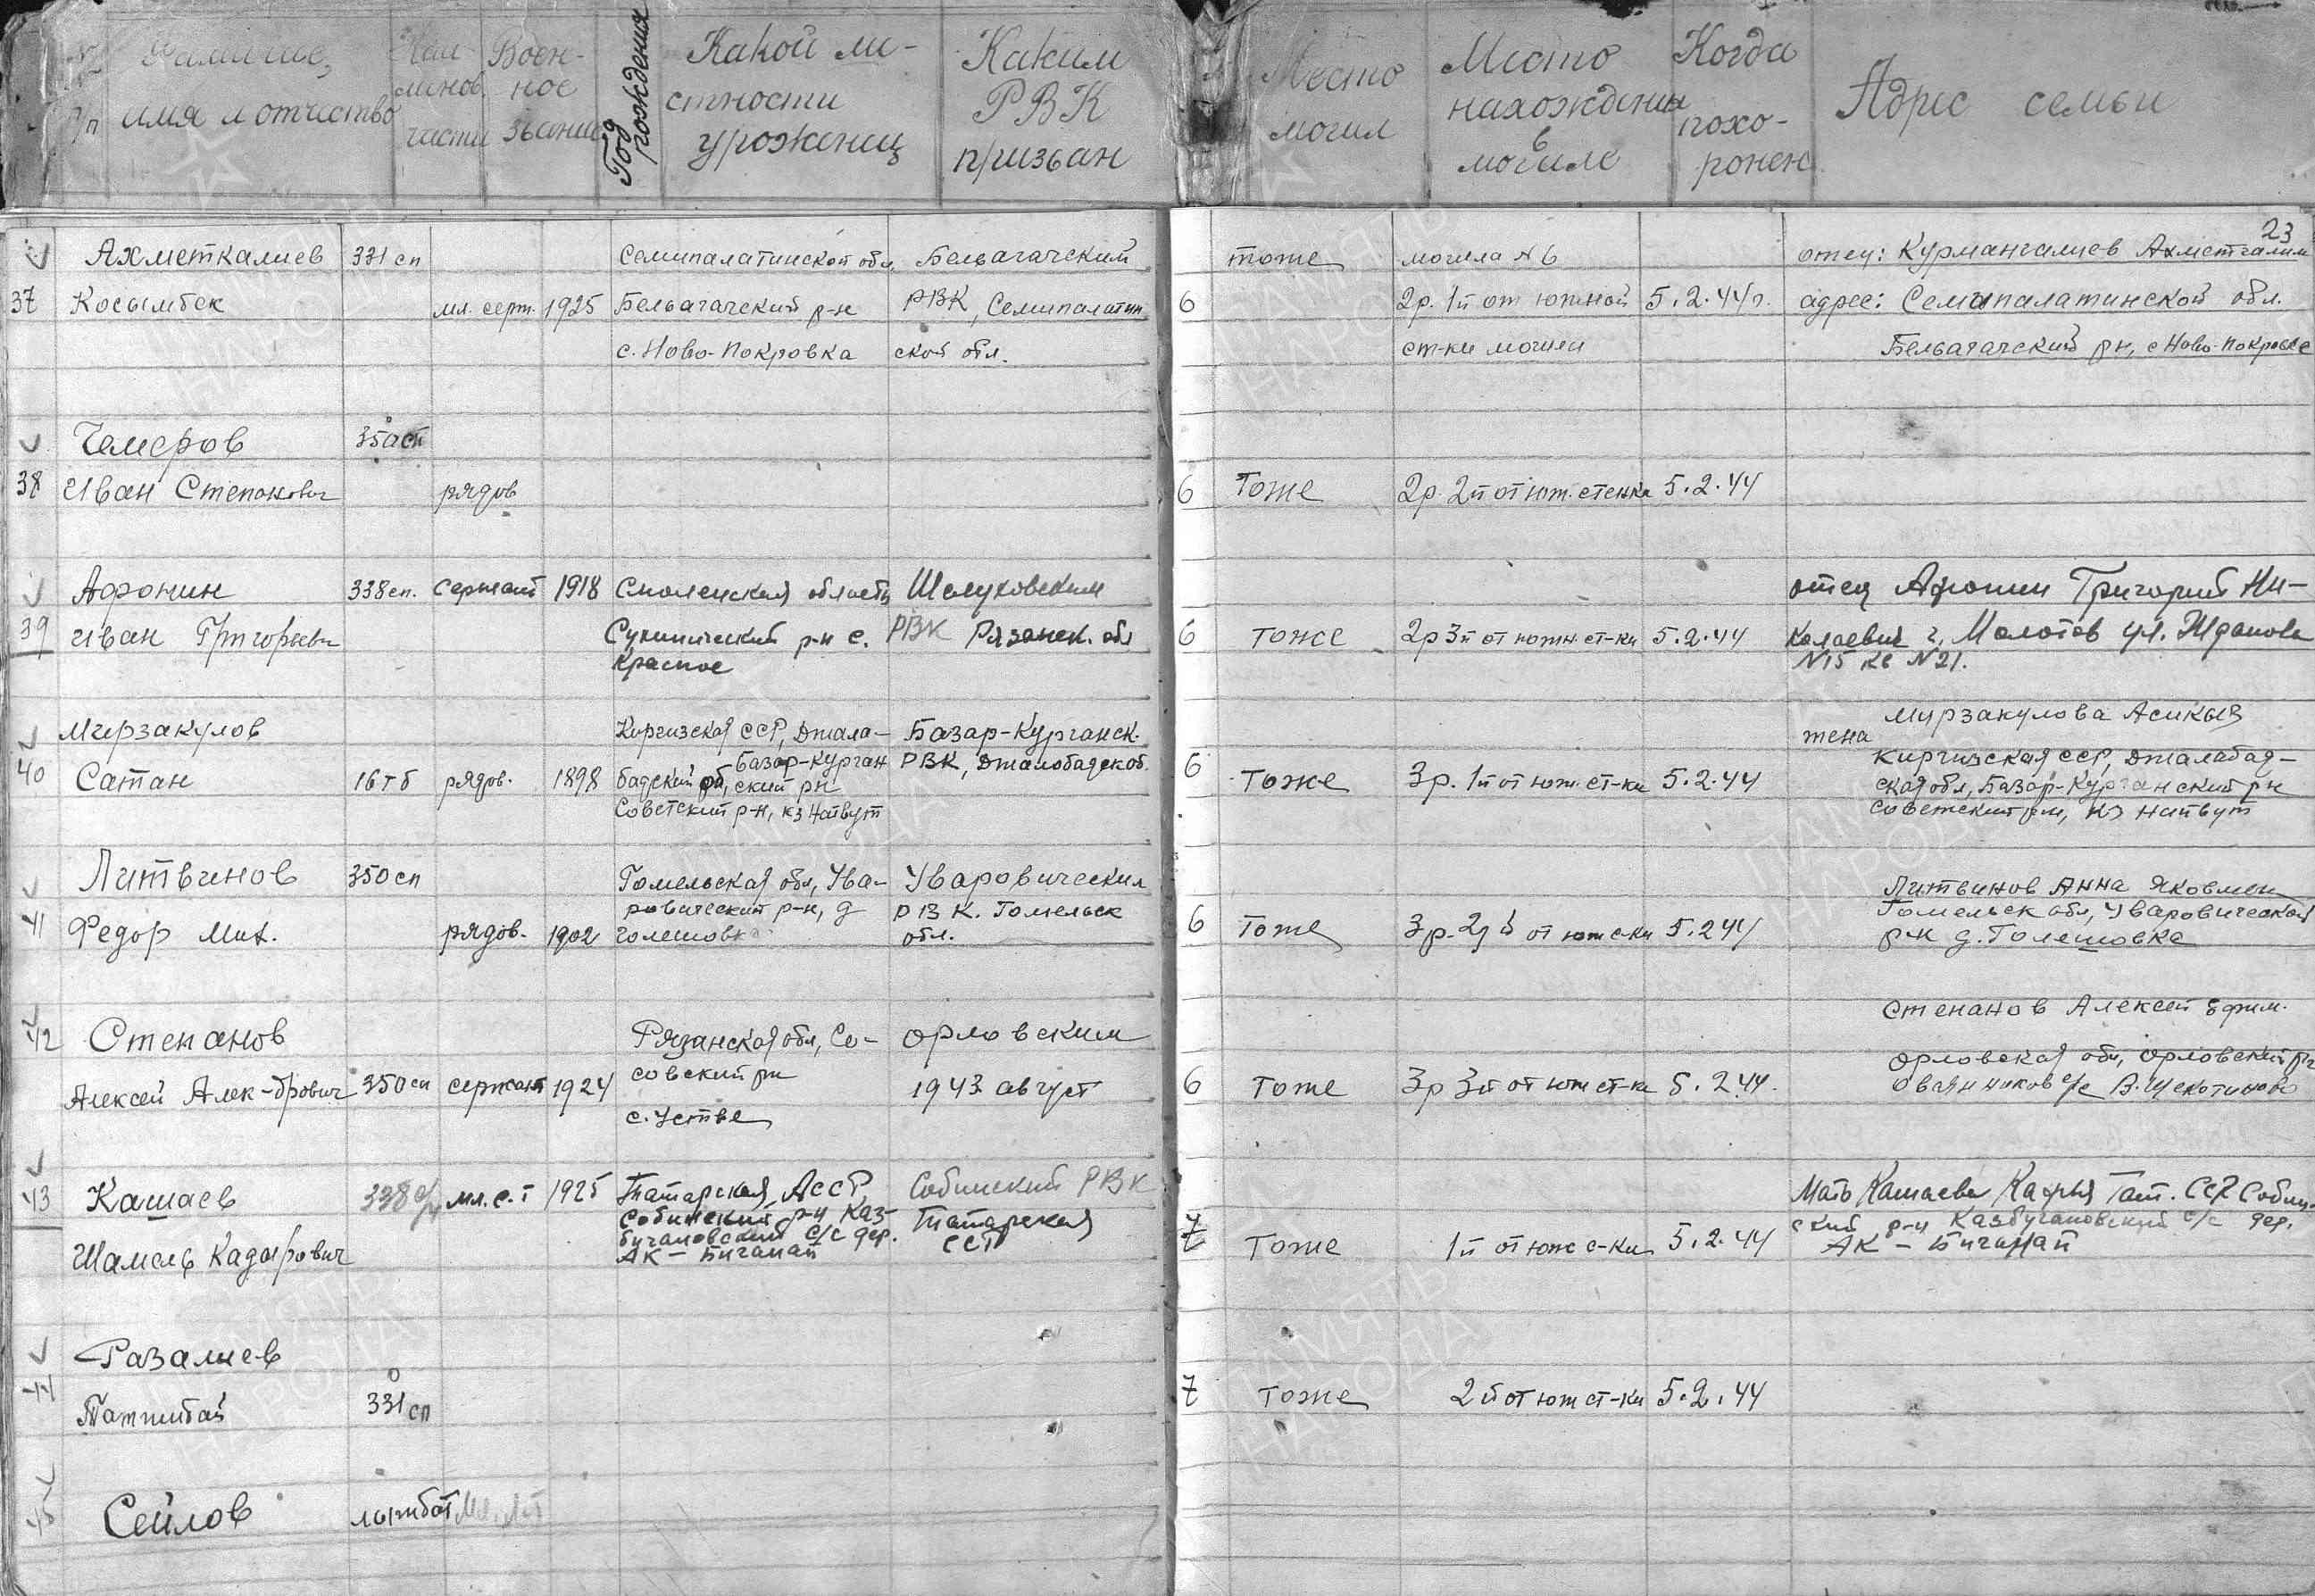 № п/п
Фамилие, имя и отчество
Наименов. части
Военное звание
Год рождения
Какой ми-
стности
урожениц
Каким
РВК
призван
Место
могил
Место
нахождения
в
могиле
Когда
похо-
ронен
Адрес семьи
23
37 Ахметкалиев Косымбек
331 сп
мл. серж.
1925
Семипалатинской обл.
Бельагачский р-н
с. Ново-Покровка
Бельагачский
РВК, Семипалатин
ской обл.
6
тоже
могила №6
2р. 1й от южной
ст-ки могили
5.2.44г.
отец: Курмангалиев Ахметгалим
адрес: Семипалатинской обл.
Бельагачский рн, с Ново-Покровке
38 Чемеров
Иван Степанович
350 сп
рядов
6
Тоже
2р. 2й от юж. стенки
5.2.44
39 Афонин
Иван Григорьевич
338 сп.
Сержант
1918
Смоленская область
Сухинический р-н с.
Красное
Шелуховским
РВК Рязанск. обл
6
Тоже
2р 3й от южн. ст-ки
5.2.44
отец Афонин Григорий Ни-
колаевич г. Молотов ул. Жданова
№15 кв №21.
40 Мирзакулов
Сатан
16 т б
рядов.
1898
Киргизская ССР, Джала-
Базар-Курган
бадский об, ский рн
Советский р-н, кз Найвут
Базар-Курганск.
РВК, Джалобадск об.
6
Тоже
3р. 1й от юж. ст-ки
5.2.44
Мирзакулова Асикыз
жена
Киргизская ССР, Джалабад-
ская обл, Базар-Курганский рн
Советский рн, кз Найвут
41 Литвинов
Федор Мих.
350 сп
рядов.
1902
Гомельская обл, Ува-
ровический р-н, д
Голешовка
Уваровическим
РВК. Гомельск
обл.
6
Тоже
3р. 2й от юж с-ки
5.2 44
Литвинов Анна Яковлен
Гомельск обл, Уваровической
р-н д. Голешовка
42 Степанов
Алексей Алек-дрович
350 сп
сержант
1924
Рязанская обл, Са-
совский рн
с. Устье
Орловским
1943 август
6
Тоже
3р 3й от юж ст-ки
5.2.44.
Степанов Алексей Ефим.
Орловская обл, Орловский рн
с/с В. Щекотихово
43 Кашаев
Шамель Кадырович
338 сп
мл. с-т
1925
Татарская АССР
Собинский р-н Каз-
бугановский с/с дер.
АК - Бигамай
Собинский РВК
Татарская
ССР
7
Тоже
1й от юж с-ки
5.2.44
Мать Кашаева Кафья Тат. ССР Собин-
ский р-н Казбугановский с/с дер.
АК - Бигамай
44 Разалиев
331 сп
7
Тоже
2й от юж ст-ки
5.2.44
45 Сейлов
лыжбат
Мл. л-т
ПАМЯТЬ
НАРОДА